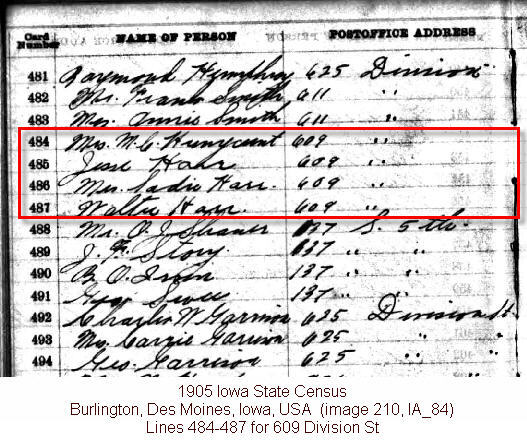 Card Number NAME OF PERSON POSTOFFICE ADDRESS
481 Raymond Humphrey 625 Division
482 Mr. Frank Smith 611 "
483 Mrs. Annie Smith 611 "
484 Mrs. M. C. 609 "
485 Jesse Harr 609 "
486 Mrs. Sadie Harr. 609 "
487 Walter Harr. 609 "
488 Mr. O. J. 137 S. 5th.
489 J. F. Story. 137 " "
490 B. O. 137 " "
491 137 " "
492 Charles W Garrison 625 Division St
493 Mrs. Carrie Garrison 625 " "
494 Geo. Garrison 625 " "
1905 Iowa State Census
Burlington, Des Moines, Iowa, USA (image 210, IA_84)
Lines 484-487 for 609 Division St